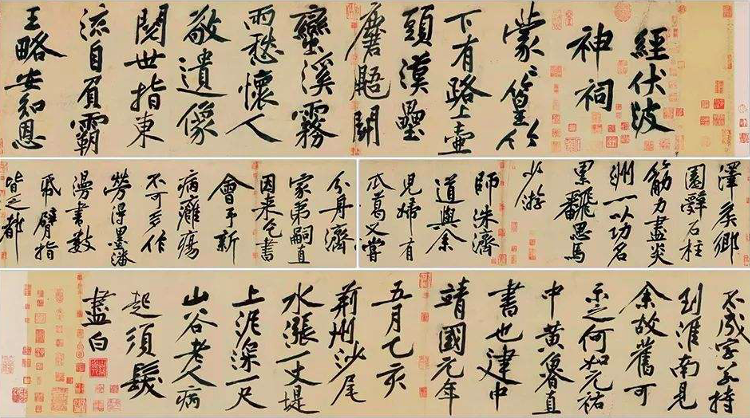 經伏波
神祠
蒙〻篁竹
下有路上壺
頭漢壘
鼯鬬
蠻溪霧
雨愁懷人
敬遺像
閱世指東
流自負霸
王略安知恩
澤矦鄉
園辭石柱
筋力盡炎
洲一以功名
累翻思馬
少游
師洙濟
道與余
兒婦有
瓜葛又嘗
分舟濟
家弟嗣直
因來乞書
會予新
病癰瘍
不可多作
勞得墨瀋
漫書數
紙臂指
皆乏都
不成字若持
到淮南見
余故舊可
示之何如元祐
中黃魯直
書也建中
靖國元年
五月乙亥
荊州沙尾
水漲一丈堤
上泥深一尺
山谷老人病
起須髮
盡白